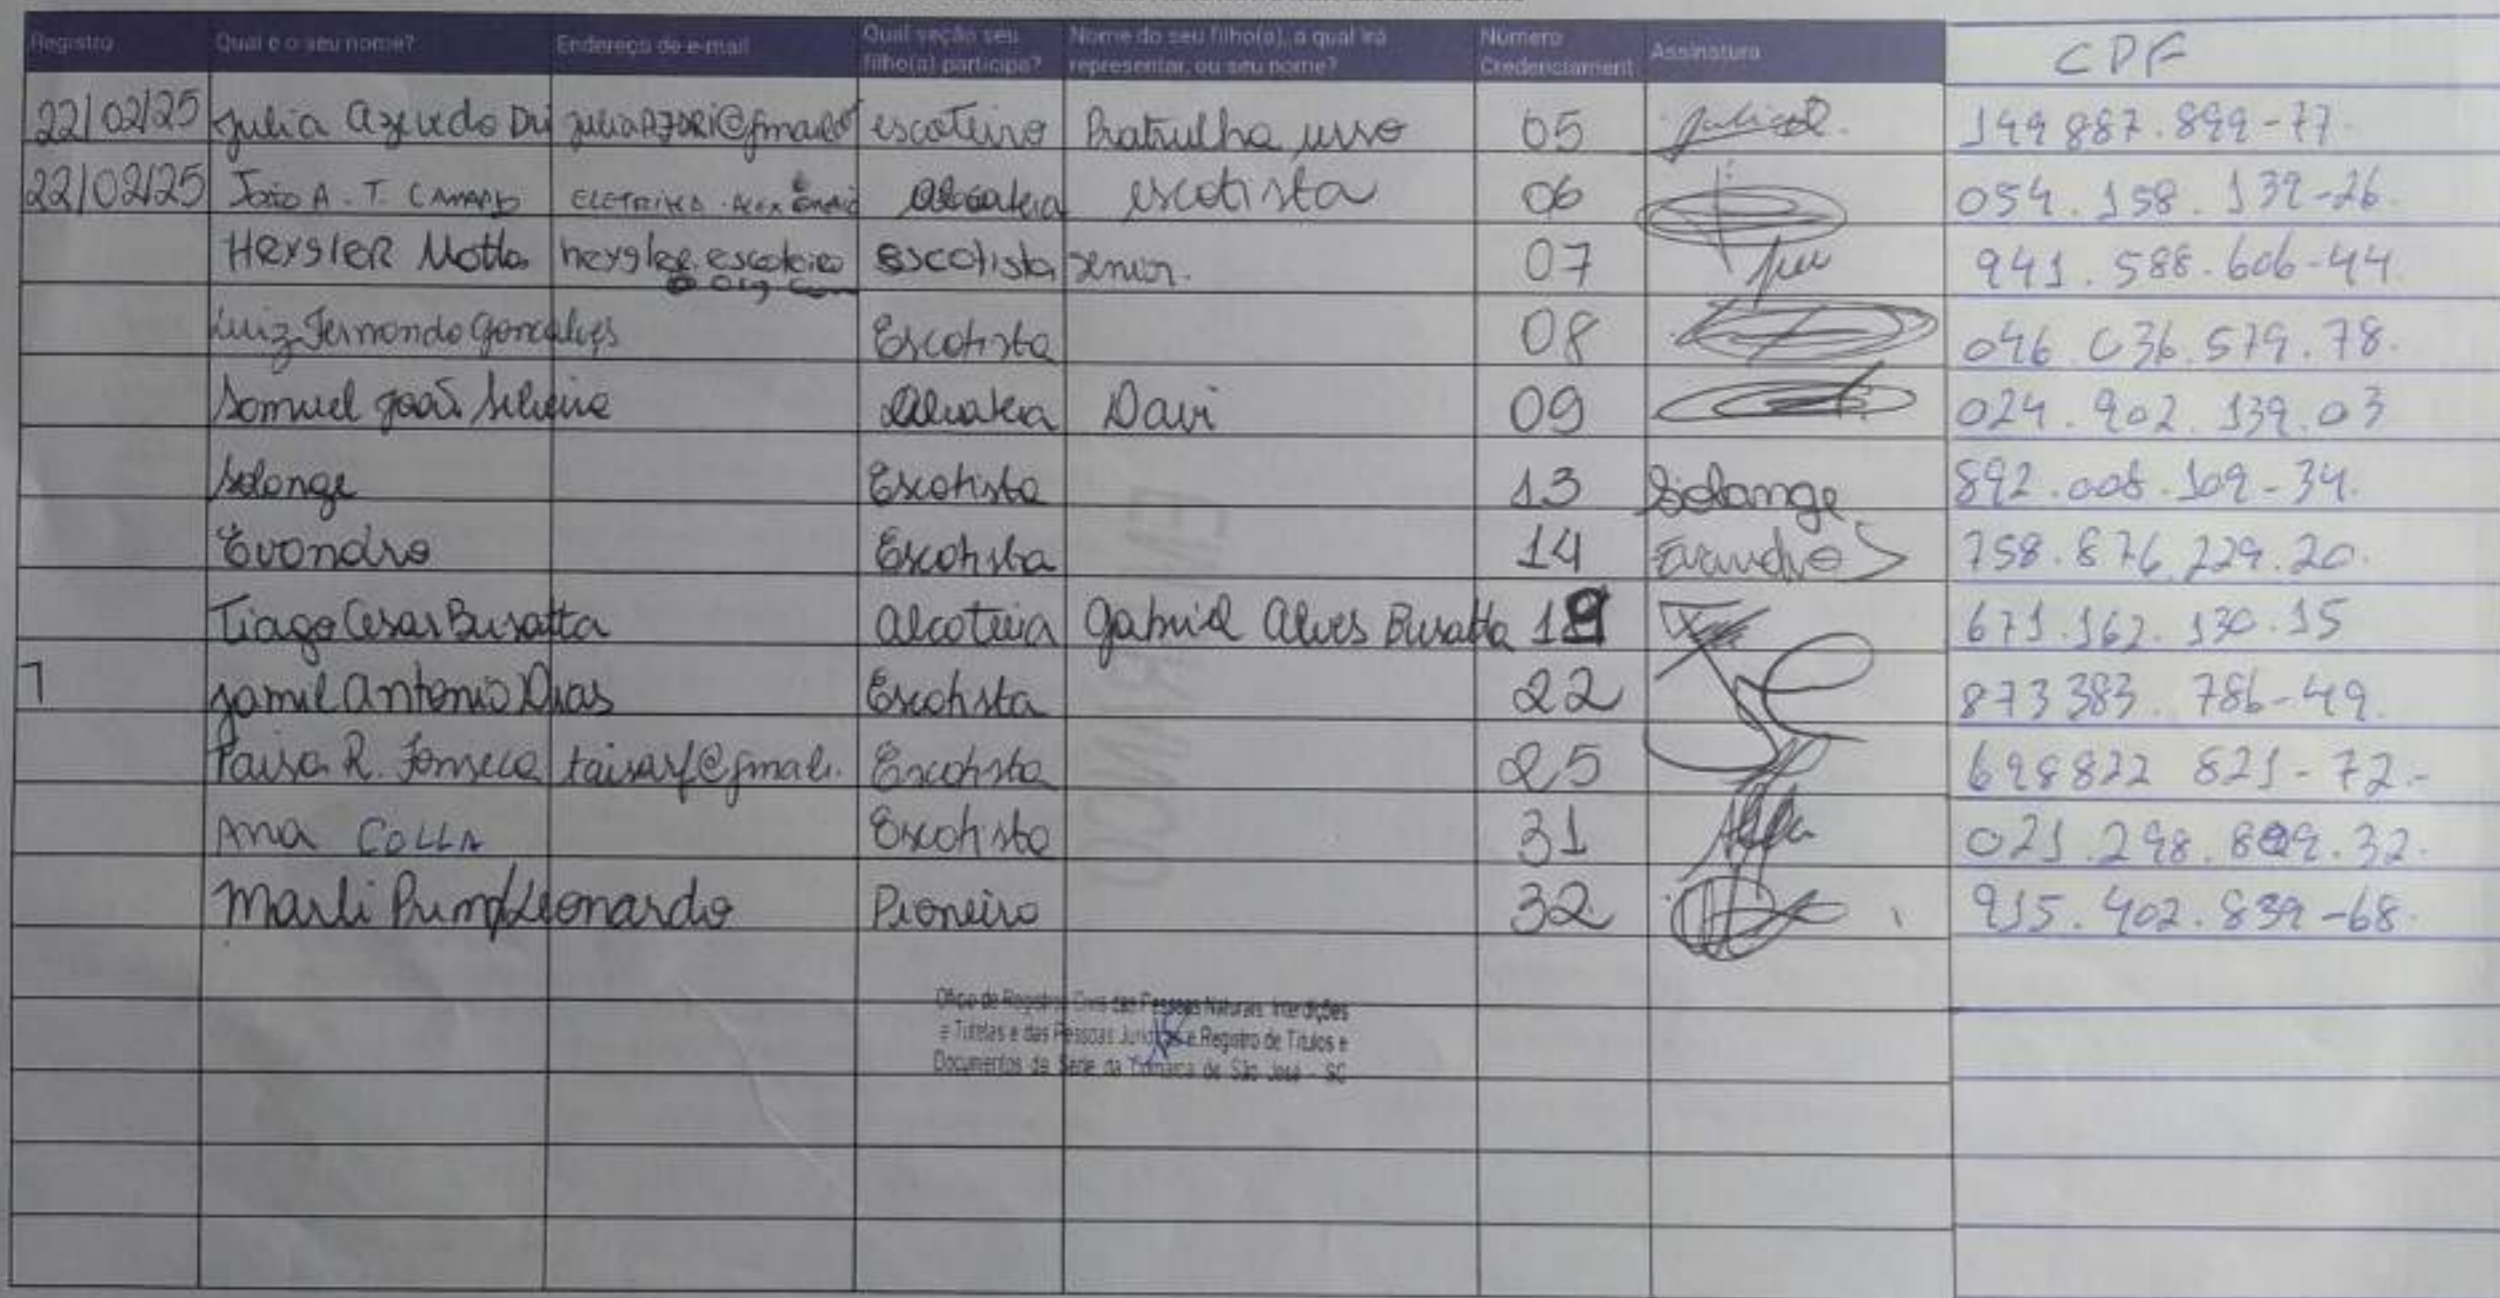 Registro Qual é o seu nome? Endereço de e-mail Qual seção seu filho(a) participa? Nome do seu filho(a), a qual irá representar, ou seu nome? Número Credenciament Assinatura CPF
22/02/25 Julia Azevedo Dri escoteiro Patrulha urso 05 149 887.899-77
22/02/25 João A. T. Alcateia escotista 06 054.158.139-26
Heysler Motta heysler.escoteiro Escotista senior. 07 941.588.606-44
Luiz Fernando Gonçalves Escotista 08 046.036.579.78
Samuel João Silveira Alcateia Davi 09 024.902.139.03
Solange Escotista 13 Solange 892.008.109-34
Evandro Escotista 14 Evandro 758.876.229.20
Tiago Cesar Busatta alcateia Gabriel Alves Busatta 671.162.130.15
Jamil Antonio Dias Escotista 22 873 383.786-49
Taisa R. Fonseca Escotista 25 698822 821-72
Ana COLLA Escotista 31 021.298.
Marli Pioneiro 32 915.402.839-68
Ofício de Registros Civis das Pessoas Naturais, Interdições
e Tutelas e das Pessoas Jurídicas e Registro de Títulos e
Documentos da Sede da Comarca de São José - SC
EM BRANCO